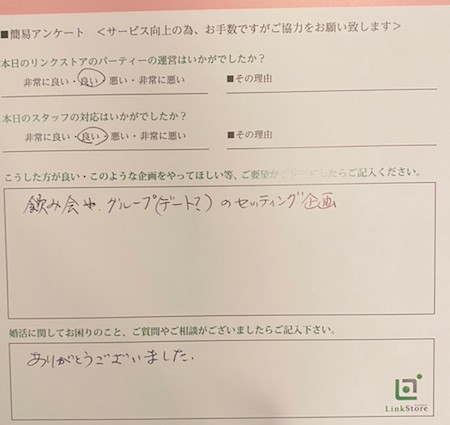 ■簡易アンケート <サービス向上の為、お手数ですがご協力をお願い致します>
本日のリンクストアのパーティーの運営はいかがでしたか?
非常に良い・良い・悪い・非常に悪い ■その理由
本日のスタッフの対応はいかがでしたか?
非常に良い・良い・悪い・非常に悪い ■その理由
こうした方が良い・このような企画をやってほしい等、ご要望が したらご記入ください。
飲み会や、グループ(デート?)のセッティング企画
婚活に関してお困りのこと、ご質問やご相談がございましたらご記入下さい。
ありがとうございました.
LinkStore